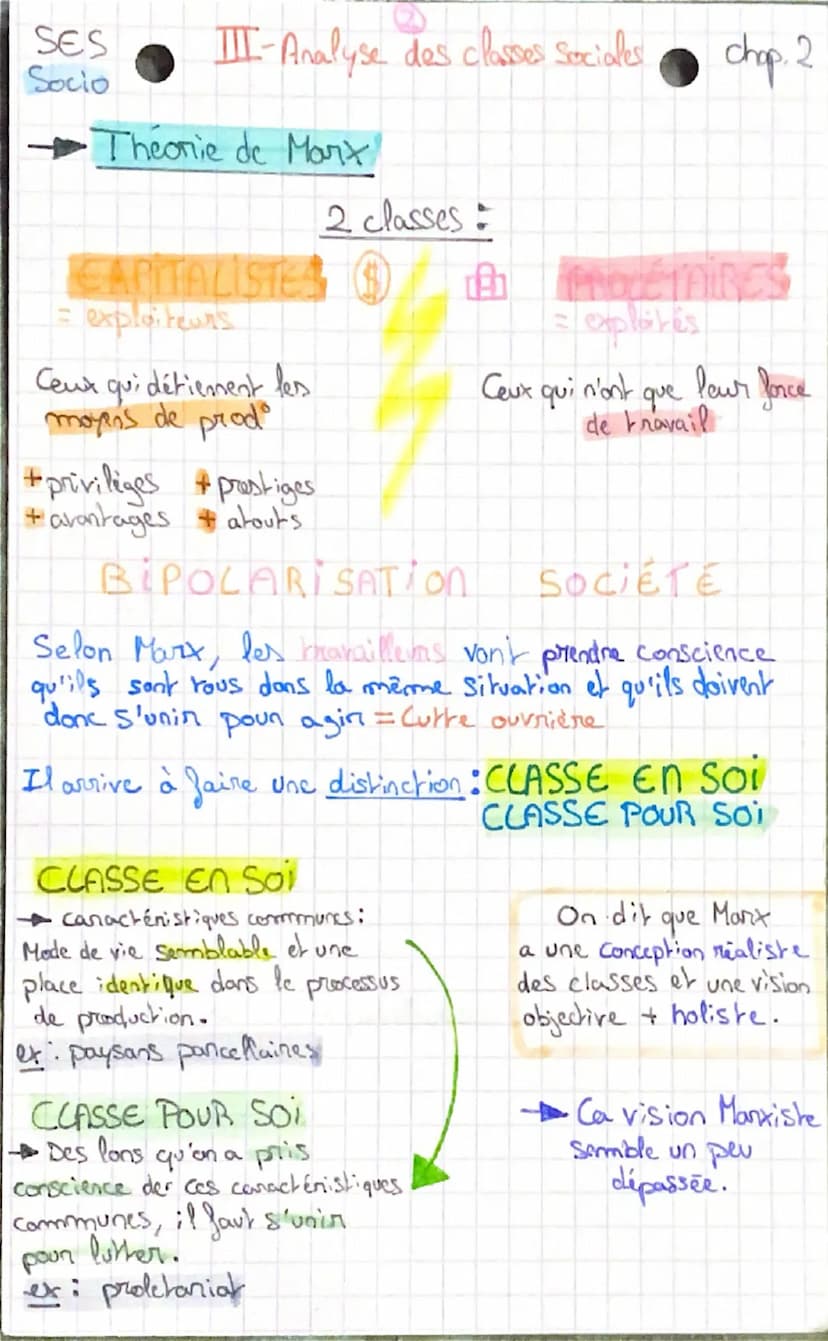 2
SES
III - Analyse des classes sociales
chap. 2
Socio
→ Théorie de Marx
2 classes :
CAPITALISTES $
PROLÉTAIRES
= exploiteurs
= exploités
Ceux qui détiennent les
moyens de prod°
Ceux qui n'ont que leur force
de travail
+ privilèges + prestiges
+ avantages + atouts
BiPOLARiSATiON SOCiÉTÉ
Selon Marx, les travailleurs vont prendre conscience
qu'ils sont tous dans la même situation et qu'ils doivent
donc s'unir pour agir = Lutte ouvrière
Il arrive à faire une distinction : CLASSE EN SOi
CLASSE POUR SOi
CLASSE EN SOi
→ caractéristiques communes :
Mode de vie semblable et une
place identique dans le processus
de production.
ex : paysans parcellaires
On dit que Marx
a une conception réaliste
des classes et une vision
objective + holiste.
CLASSE POUR SOi
→ Dès lors qu'on a pris
conscience der ces caractéristiques
communes, il faut s'unir
pour lutter.
ex : proletariat
→ La vision Marxiste
semble un peu
dépassée.